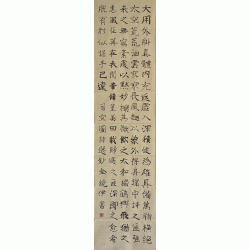 大用外腓真體內充返虛入渾積健為雄具備萬物橫絕
太空荒荒油雲寥寥長風超以象外得其環中持之匪強
來之無窮素處以默妙機其微飲之太和獨鶴與飛猶之
惠風荏苒在衣閱音修篁美曰載歸遇之匪深即之愈希
脫有形似握手已違
司空圖詩